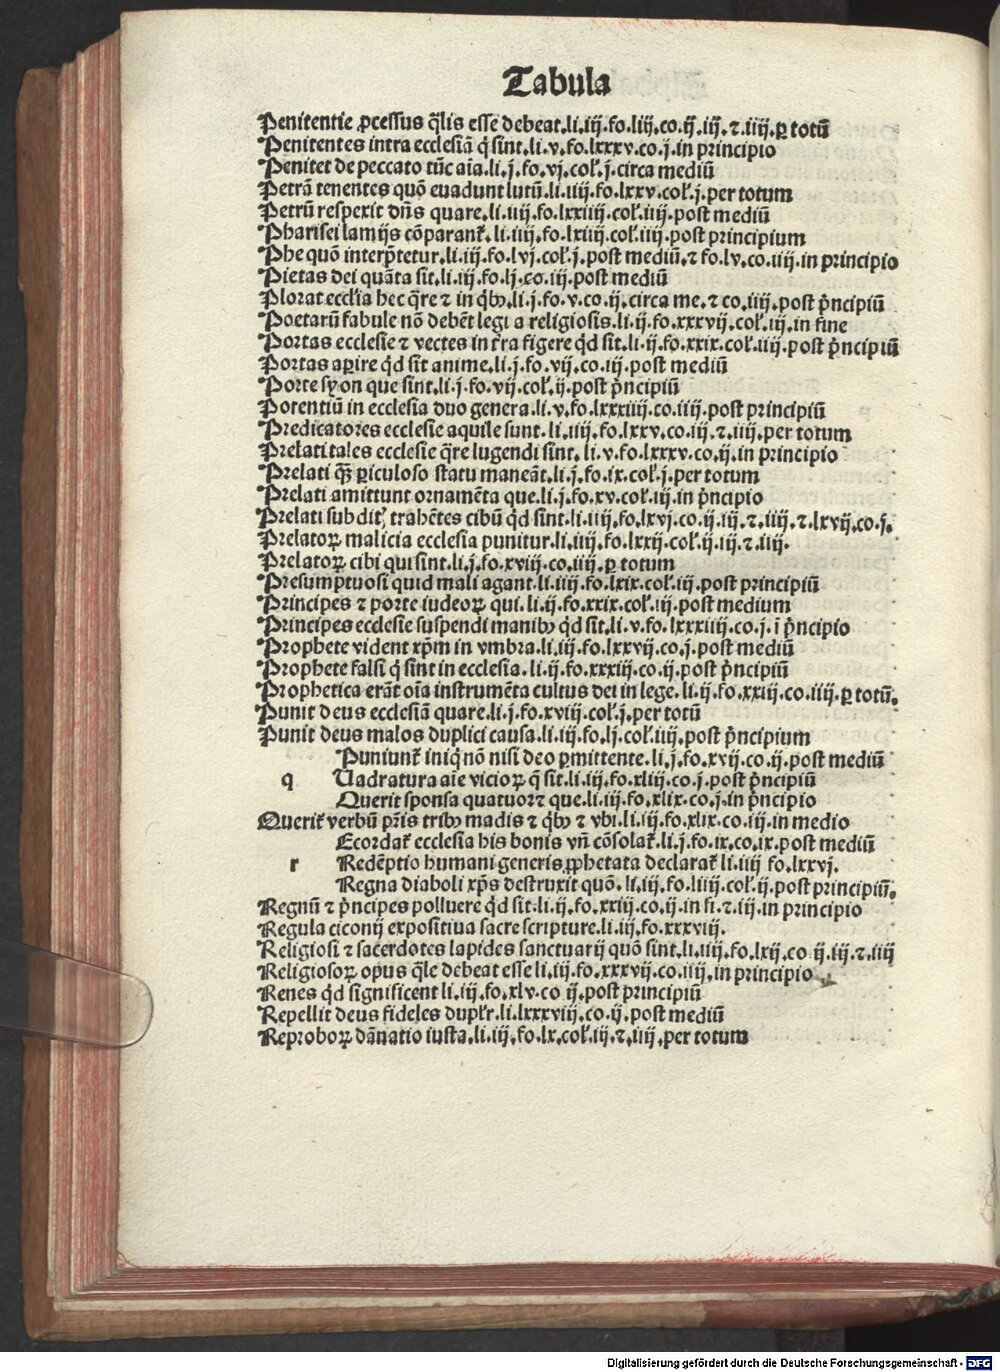 Tabula
Penitentie ꝓcessus q̃lis esse debeat.li.iij.fo.liij.co.ij.iij.⁊.iiij.ꝑ totũ
Penitentes intra ecclesiã q̇ sint.li.v.fo.lxxxv.co.j.in principio
Penitet de peccato tũc aĩa.li.j.fo.vj.coł.j.circa mediũ
Petrã tenentes quõ euadunt lutũ.li.iiij.fo.lxxv.coł.j.per totum
Petrũ respexit dñs quare.li.iiij.fo.lxxiiij.coł.iiij.post mediũ
Pharisei lamijs cõparant᷑.li.iiij.fo.lxiiij.coł.iiij.post principium
Phe quõ interp̃tetur.li.iij.fo.lvj.coł.j.post mediũ.⁊ fo.lv.co.iiij.in principio
Pietas dei quãta sit.li.iij.fo.lj.co.iij.post mediũ
Plorat eccl̃ia hec q̃re ⁊ in q̇bꝫ.li.j.fo.v.co.ij.circa me.⁊ co.iiij.post p̃ncipiũ
Poetarũ fabule nõ debẽt legi a religiosis.li.ij.fo.xxxvij.coł.iij.in fine
Portas ecclesie ⁊ vectes in t̃ra figere q̇d sit.li.ij.fo.xxix.coł.iiij.post p̃ncipiũ
Portas aꝑire q̇d sit anime.li.j.fo.vij.co.iij.post mediũ
Porte syon que sint.li.j.fo.vij.coł.ij.post p̃ncipiũ
Potentiũ in ecclesia duo genera.li.v.fo.lxxxiiij.co.iiij.post principiũ
Predicatores ecclesie aquile sunt.li.iiij.fo.lxxv.co.iij.⁊.iiij.per totum
Prelati tales ecclesie q̃re lugendi sint.li.v.fo.lxxxv.co.ij.in principio
Prelati q̃ꝫ ꝑiculoso statu maneãt.li.j.fo.ix.coł.j.per totum
Prelati amittunt ornamẽta que.li.j.fo.xv.coł.iij.in p̃ncipio
Prelati subditꝭ trahẽtes cibũ q̇d sint.li.iiij.fo.lxvj.co.ij.iij.⁊.iiij.⁊.lxvij.co.j.
Prelatoꝝ malicia ecclesia punitur.li.iiij.fo.lxxij.coł.ij.iij.⁊.iiij.
Prelatoꝝ cibi qui sint.li.j.fo.xviij.co.iiij.ꝑ totum
Presumptuosi quid mali agant.li.iiij.fo.lxix.coł.iij.post principiũ
Principes ⁊ porte iudeoꝝ qui.li.ij.fo.xxix.coł.iij.post medium
Principes ecclesie suspendi manibꝫ q̇d sit.li.v.fo.lxxxiiij.co.j.ĩ p̃ncipio
Prophete vident xp̃m in vmbra.li.iij.fo.lxxvij.co.j.post mediũ
Prophete falsi q̇ sint in ecclesia.li.ij.fo.xxxiij.co.ij.post p̃ncipiũ
Prophetica erãt oĩa instrumẽta cultus dei in lege.li.ij.fo.xxiij.co.iiij.ꝑ totũ.
Punit deus ecclesiã quare.li.j.fo.xviij.coł.j.per totũ
Punit deus malos duplici causa.li.iij.fo.lj.coł.iiij.post p̃ncipium
Puniunt᷑ iniq̇ nõ nisi deo ꝑmittente.li.j.fo.xvij.co.ij.post mediũ
q Uadratura aĩe vicioꝝ q̃ sit.li.iij.fo.xliij.co.j.post p̃ncipiũ
Querit sponsa quatuor⁊ que.li.iij.fo.xlix.co.j.in p̃ncipio
Querit᷑ verbũ pr̃is tribꝫ madis ⁊ q̇bꝫ ⁊ vbi.li.iij.fo.xlix.co.iij.in medio
Ecordat᷑ ecclesia his bonis vñ cõsolat᷑.li.j.fo.ix.co.ix.post mediũ
r Redẽptio humani generis ꝓphetata declarat᷑ li.iiij fo.lxxvj.
Regna diaboli xp̃s destruxit quõ.li.iij.fo.liiij.coł.ij.post principiũ.
Regnũ ⁊ p̃ncipes polluere q̇d sit.li.ij.fo.xxiij.co.ij.in fi.⁊.iij.in principio
Regula ciconij expositiua sacre scripture.li.iij.fo.xxxviij.
Religiosi ⁊ sacerdotes lapides sanctuarij quõ sint.li.iiij.fo.lxij.co ij.iij.⁊.iiij
Religiosoꝝ opus q̃le debeat esse li.iij.fo.xxxvij.co.iiij.in principio
Renes q̇d significent li.iij.fo.xlv.co ij.post principiũ
Repellit deus fideles duplr̃.li.lxxxviij.co.ij.post mediũ
Reproboꝝ dãnatio iusta.li.iij.fo.lx.coł.iij.⁊.iiij.per totum
Digitalisierung gefördert durch die Deutsche Forschungsgemeinschaft - DFG